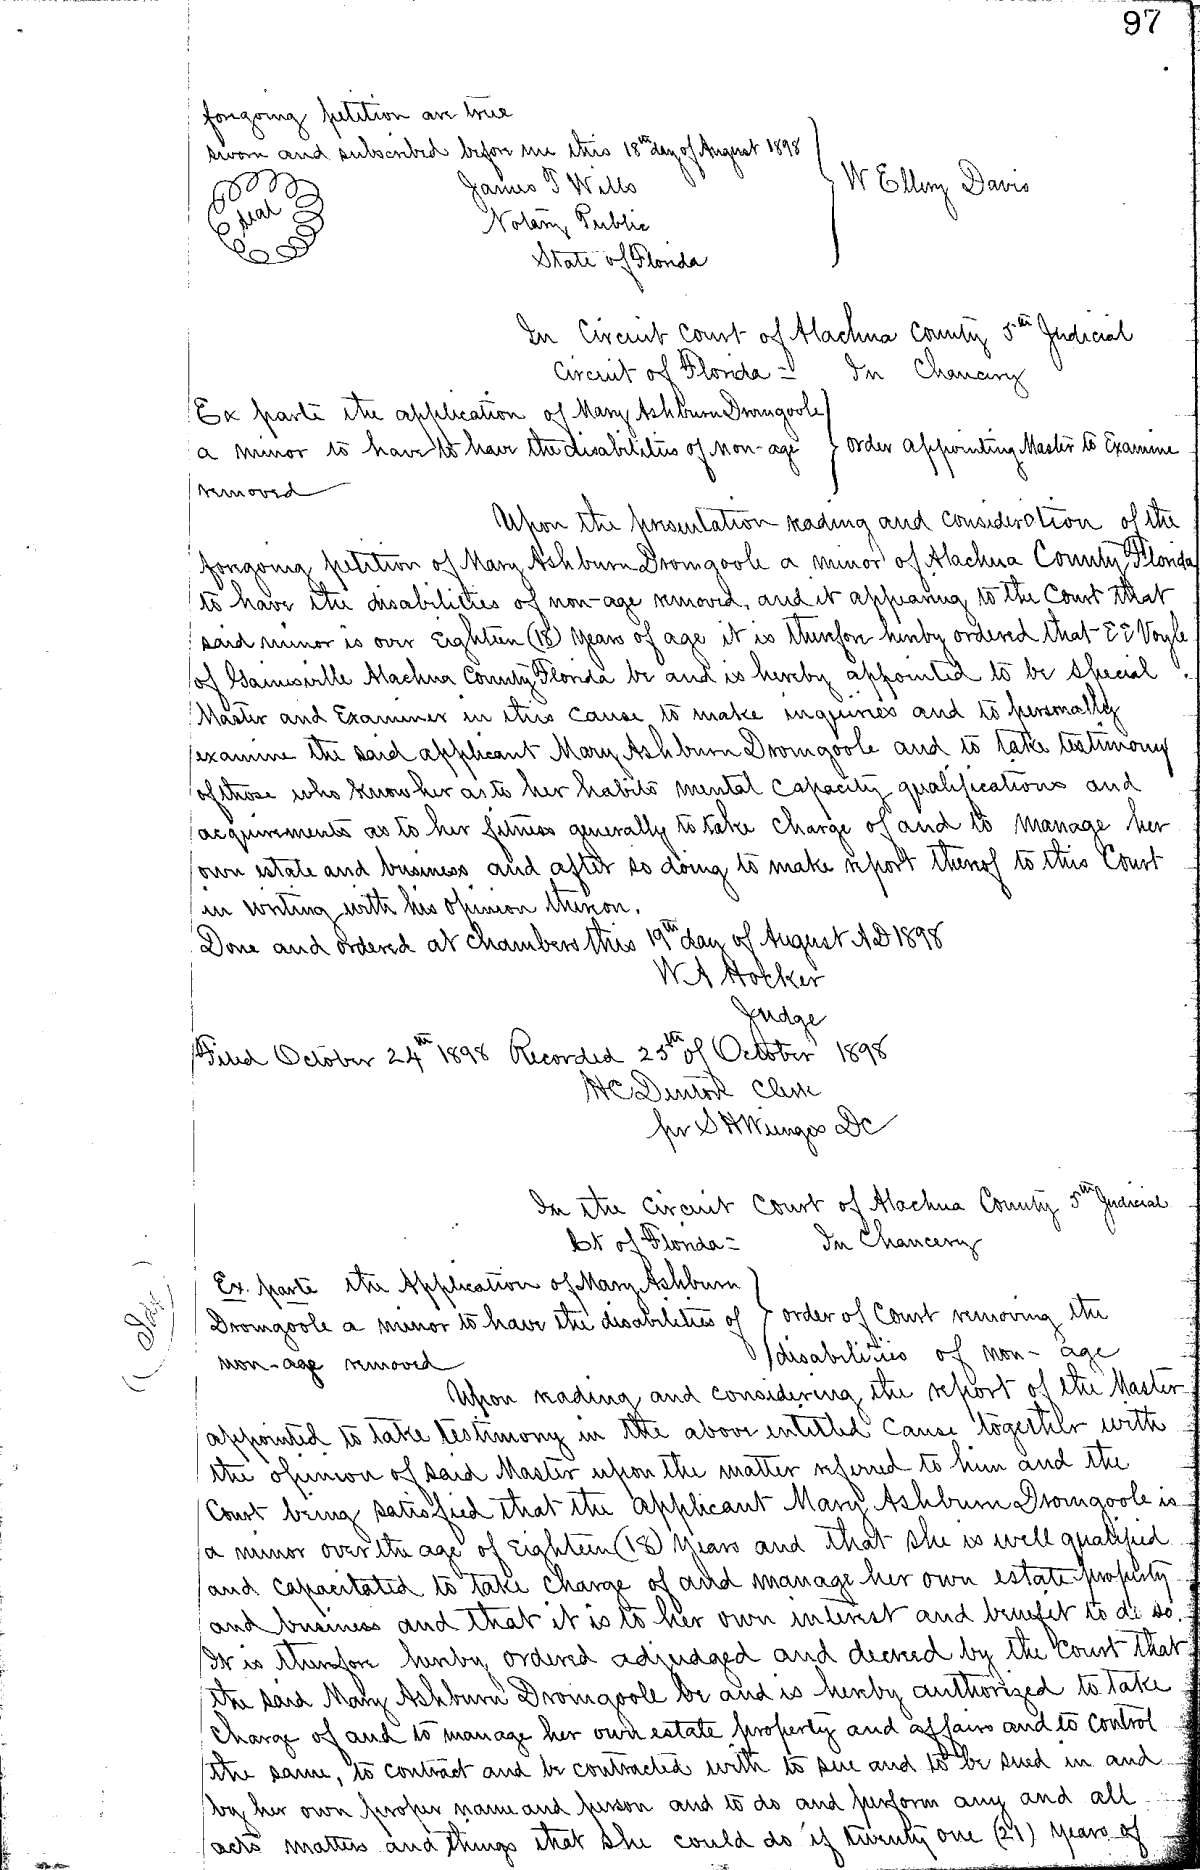 97
forgoing petition are true
sworn and subscribed before me this 18th day of August 1898
James T Wills
W Ellery Davis
Seal
Notary Public
State of Florida
In Circuit Court of Alachua County 5th Judicial
Circuit of Florida = In Chancery
Ex parte the application of Mary Ashburn Dromgoole
a minor to have to have the disabilities of non-age
order appointing Master to Examine
removed
Upon the presentation reading and consideration of the
forgoing petition of Mary Ashburn Dromgoole a minor of Alachua County Florida
to have the disabilities of non-age removed, and it appearing to the Court that
said minor is over Eighteen (18) Years of age it is therefore hereby ordered that E E Voyle
of Gainesville Alachua County Florida be and is hereby appointed to be Special
Master and Examiner in this cause to make inquiries and to personally
examine the said applicant Mary Ashburn Dromgoole and to take testimony
of those who know her as to her habits mental capacity qualifications and
acquirements as to her fitness generally to take charge of and to manage her
own estate and business and after so doing to make report thereof to this Court
in writing with his opinion thereon.
Done and ordered at Chambers this 19th day of August A D 1898
W A Hocker
Judge
Filed October 24th 1898 Recorded 25th of October 1898
H C Denton Clerk
per S H Wienges D C
In the Circuit Court of Alachua County 5th Judicial
Ct of Florida = In Chancery
Ex. parte the Application of Mary Ashburn
Dromgoole a minor to have the disabilities of
order of Court removing the
non-age removed
disabilities of non-age
Seal
Upon reading and considering the report of the Master
appointed to take testimony in the above entitled Cause together with
the opinion of said Master upon the matter referred to him and the
Court being satisfied that the applicant Mary Ashburn Dromgoole is
a minor over the age of Eighteen (18) Years and that she is well qualified
and capacitated to take charge of and manage her own estate property
and business and that it is to her own interest and benefit to do so.
It is therefore hereby ordered adjudged and decreed by the Court that
the said Mary Ashburn Dromgoole be and is hereby authorized to take
charge of and to manage her own estate property and affairs and to control
the same, to contract and be contracted with to sue and to be sued in and
by her own proper name and person and to do and perform any and all
acts matters and things that she could do if twenty one (21) years of